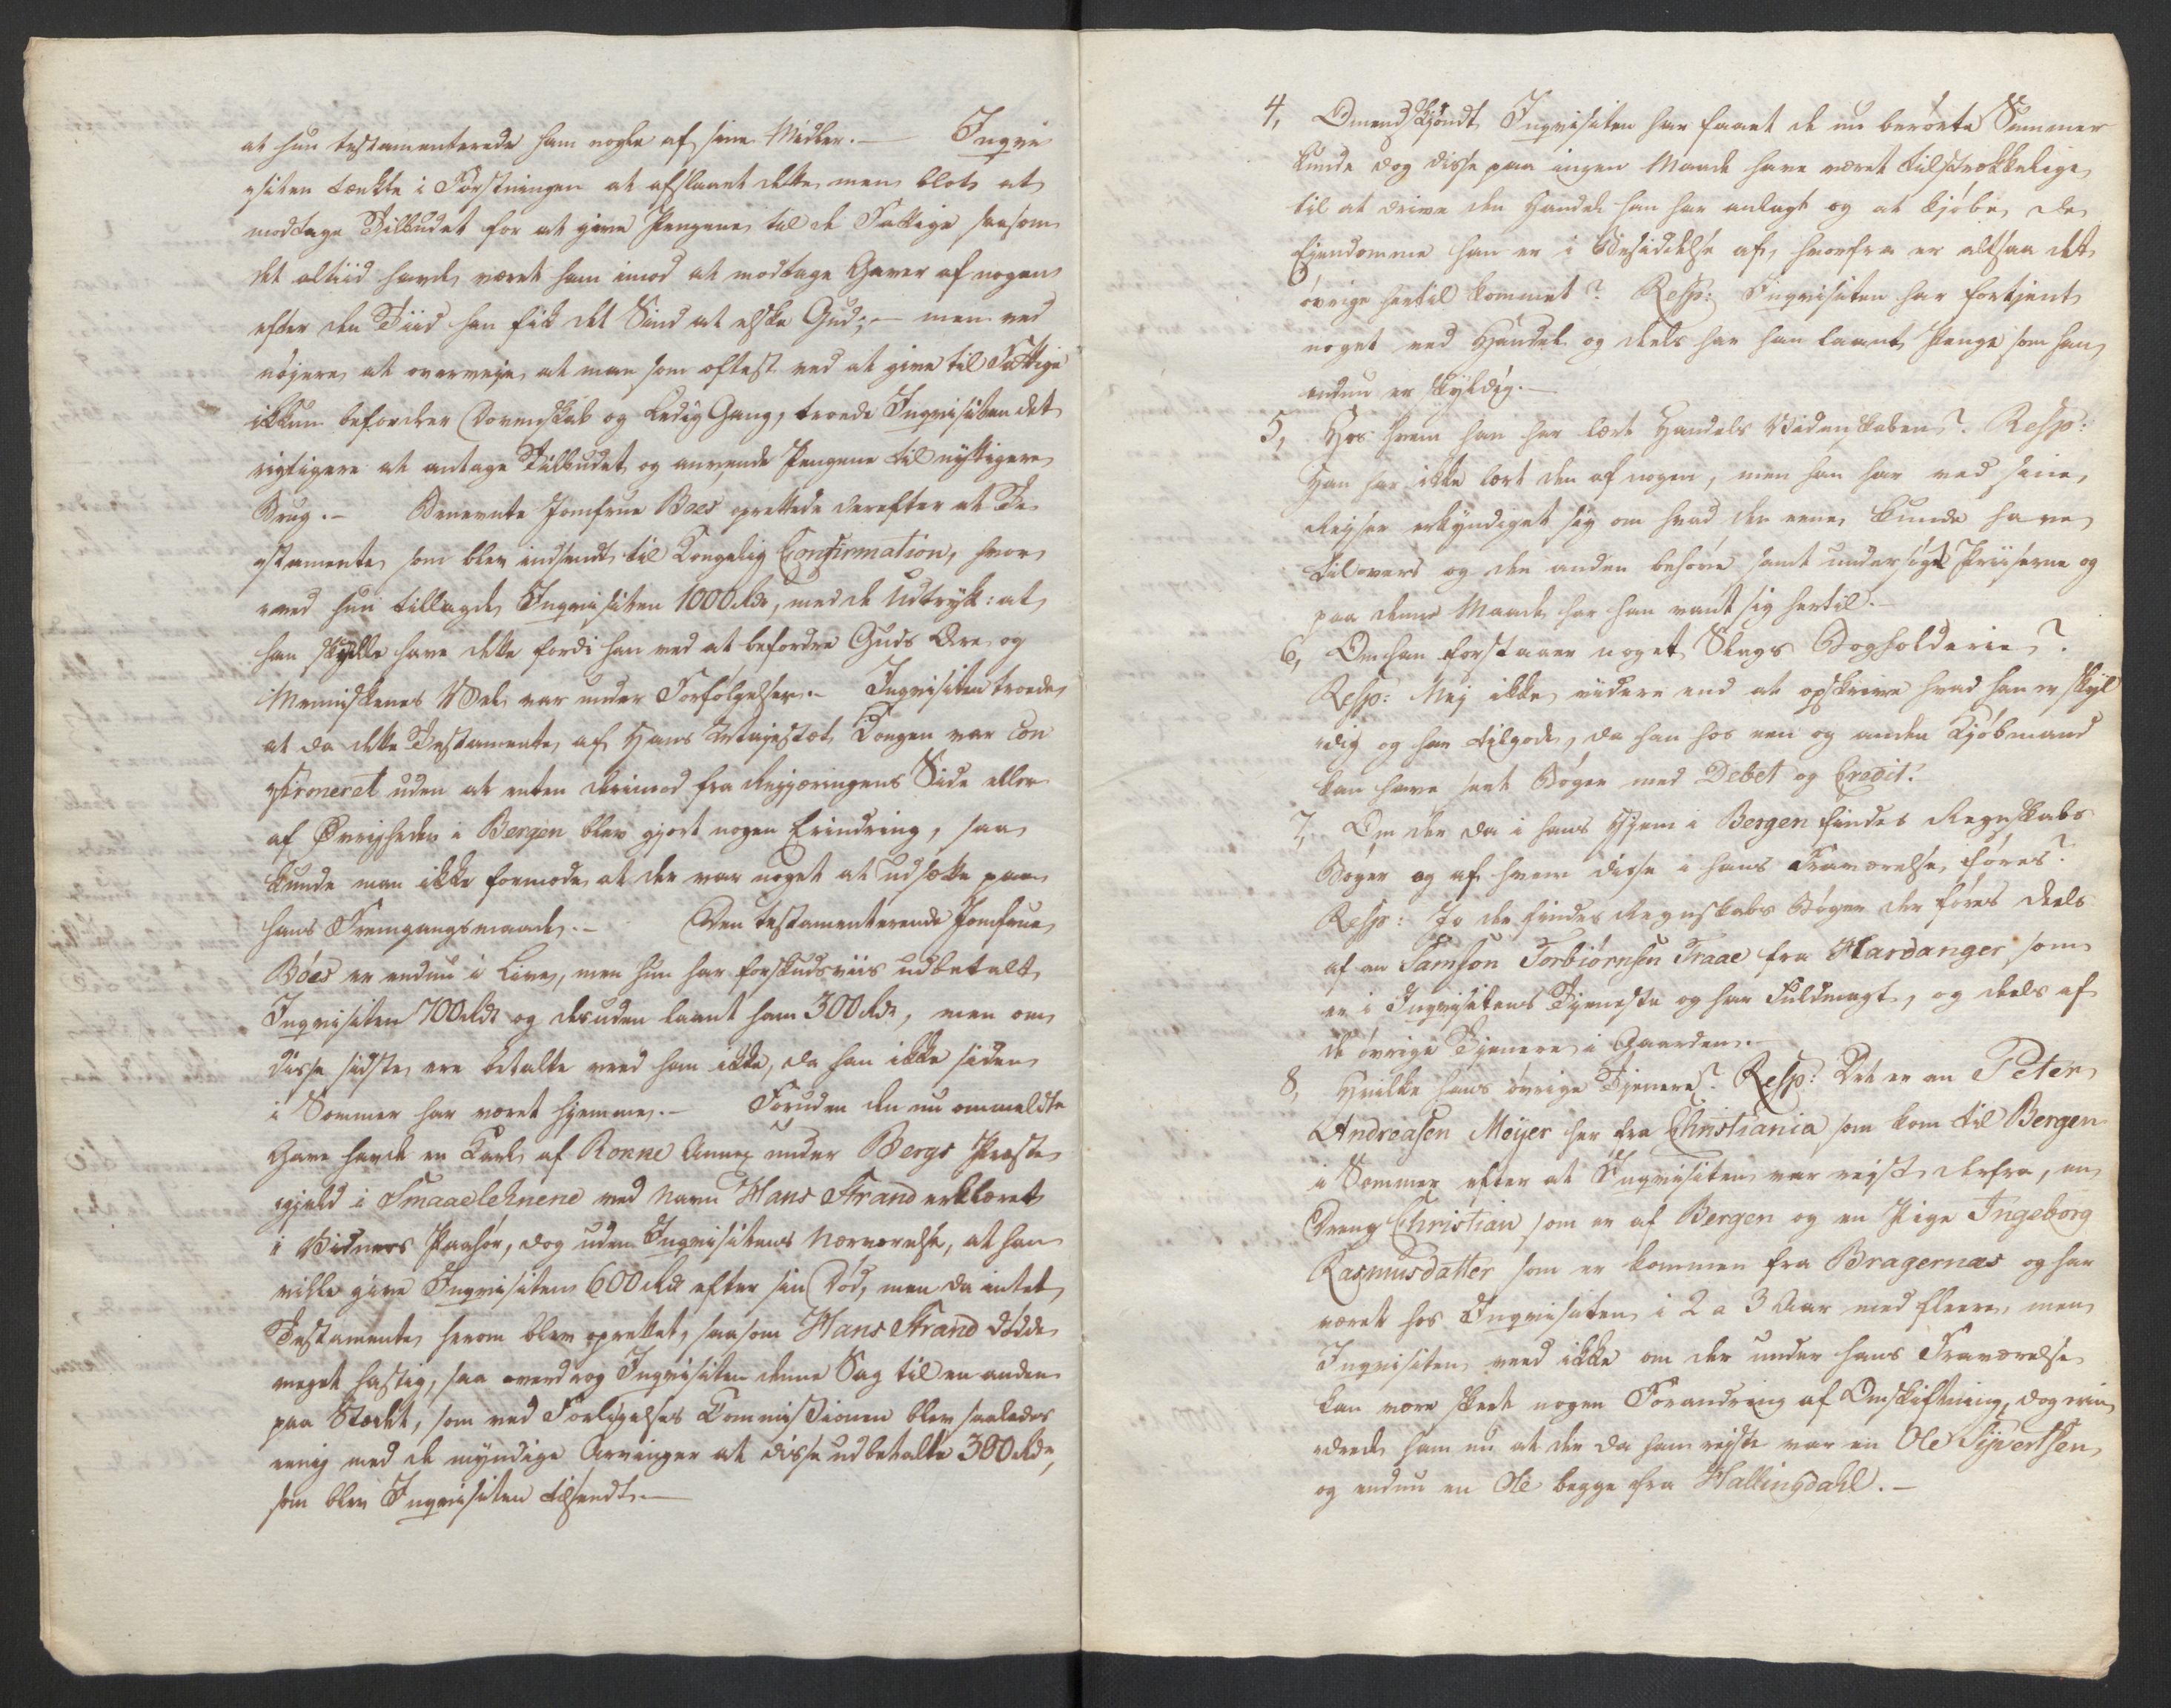 at hun testamenterede ham nogle af sine Midler. — Inqvi
siten tænkte i Førstningen at afslaaet dette, men blot at
modtage Tilbudet for at give Pengene til de Fattige saasom
det altiid havde været ham imod at modtage Gaver af nogen
efter den Tiid han fik det Sind at elske Gud; — men ved
nöjere at overveje, at man som oftest ved at give til Fattige
ikkun befordrer Dovenskab og Ledig Gang, troede Inqvisiten det
rigtigere at antage Tilbudet og anvende Pengene til nyttigere
Brug. — Benevnte Jomfrue Boes oprettede derefter et Te
stamente som blev indsendt til Kongelig Confirmation, hvor
ved hun tillagde Inqvisiten 1000 Rdr, med de Udtryk: at
han skulle have dette fordi han ved at befordre Guds Ære og
Menniskenes Vel var under Forfølgelser. — Inqvisiten troede
at da dette Testamente af Hans Majestæt Kongen var con
firmeret uden at enten derimod fra Regjeringens Side eller
af Øvrigheden i Bergen blev gjort nogen Erindring, saa
kunde man ikke formode at der var noget at udsætte paa
hans Fremgangsmaade. — Den testamenterende Jomfrue
Böes er endnu i Live, men hun har forskudsviis udbetalt
Inqvisiten 700 Rdr og desuden laant ham 300 Rdr, men om
disse sidste ere betalte veed han ikke, da han ikke siden
i Sommer har været hjemme. — Foruden den nu ommeldte
Gave havde en Karl af Ronne Annex under Bergs Præste
gjeld i Smaaelehnene ved Navn Hans Strand erklæret
i Vidners Paahør, dog uden Inqvisitens Nærværelse, at han
vilde give Inqvisiten 600 Rdr efter sin Död, men da intet
Testamente herom blev oprettet, saasom Hans Strand dödde
meget hastig, saa overdrog Inqvisiten denne Sag til en anden
paa Stædet, som ved Forligelses Commissionen blev saaledes
eenig med de myndige Arvinger at disse udbetalte 300 Rdr,
som blev Inqvisiten tilsendt. —
4, Omendskjöndt Inqvisiten har faaet de nu berörte Summer
kunde dog disse paa ingen Maade have været tilstrækkelige
til at drive den Handel han har anlagt og at kjöbe de
Ejendomme han er i Besiddelse af, hvorfra er altsaa det
övrige hertil kommet? Resp: Inqvisiten har fortjent
noget ved Handel og deels har han laant Penge som han
endnu er skyldig. —
5, Hos hvem han har lært Handels Videnskaben? Resp:
Han har ikke lært den af nogen, men han har ved sine
Rejser erkyndiget sig om hvad den eene kunde have
tilovers og den anden behöve samt undersögt Priiserne og
paa denne Maade har han vant sig hertil. —
6, Om han forstaaer noget Slags Bogholderie?
Resp: Nej ikke videre end at opskrive hvad han er skyl
dig og har tilgode, da han hos een og anden Kjöbmand
kan have seet Bøger med Debet og Credit.
7, Om der da i hans Hjem i Bergen findes Regnskabs
Bøger og af hvem disse i hans Fraværelse føres?
Resp: Jo der findes Regnskabs Bøger der föres deels
af en Samson Torbiörnsen Traae fra Hardanger som
er i Inqvisitens Tjeneste og har Fuldmagt, og deels af
de övrige Tjenere i Gaarden. —
8, Hvilke hans övrige Tjenere? Resp: Det er en Peter
Andreasen Meyer her fra Christiania som kom til Bergen
i Sommer efter at Inqvisiten var rejst derfra, en
Dreng Christian som er af Bergen og en Pige Ingeborg
Rasmusdatter som er kommen fra Bragernæs og har
været hos Inqvisiten i 2 a 3 Aar med fleere, men
Inqvisiten veed ikke om der under hans Fraværelse
kan være skeet nogen Forandring af Omskiftning, dog erin
drede ham nu at der da ham rejste var en Ole Syvertsen
og endnu en Ole begge fra Hallingdahl. —